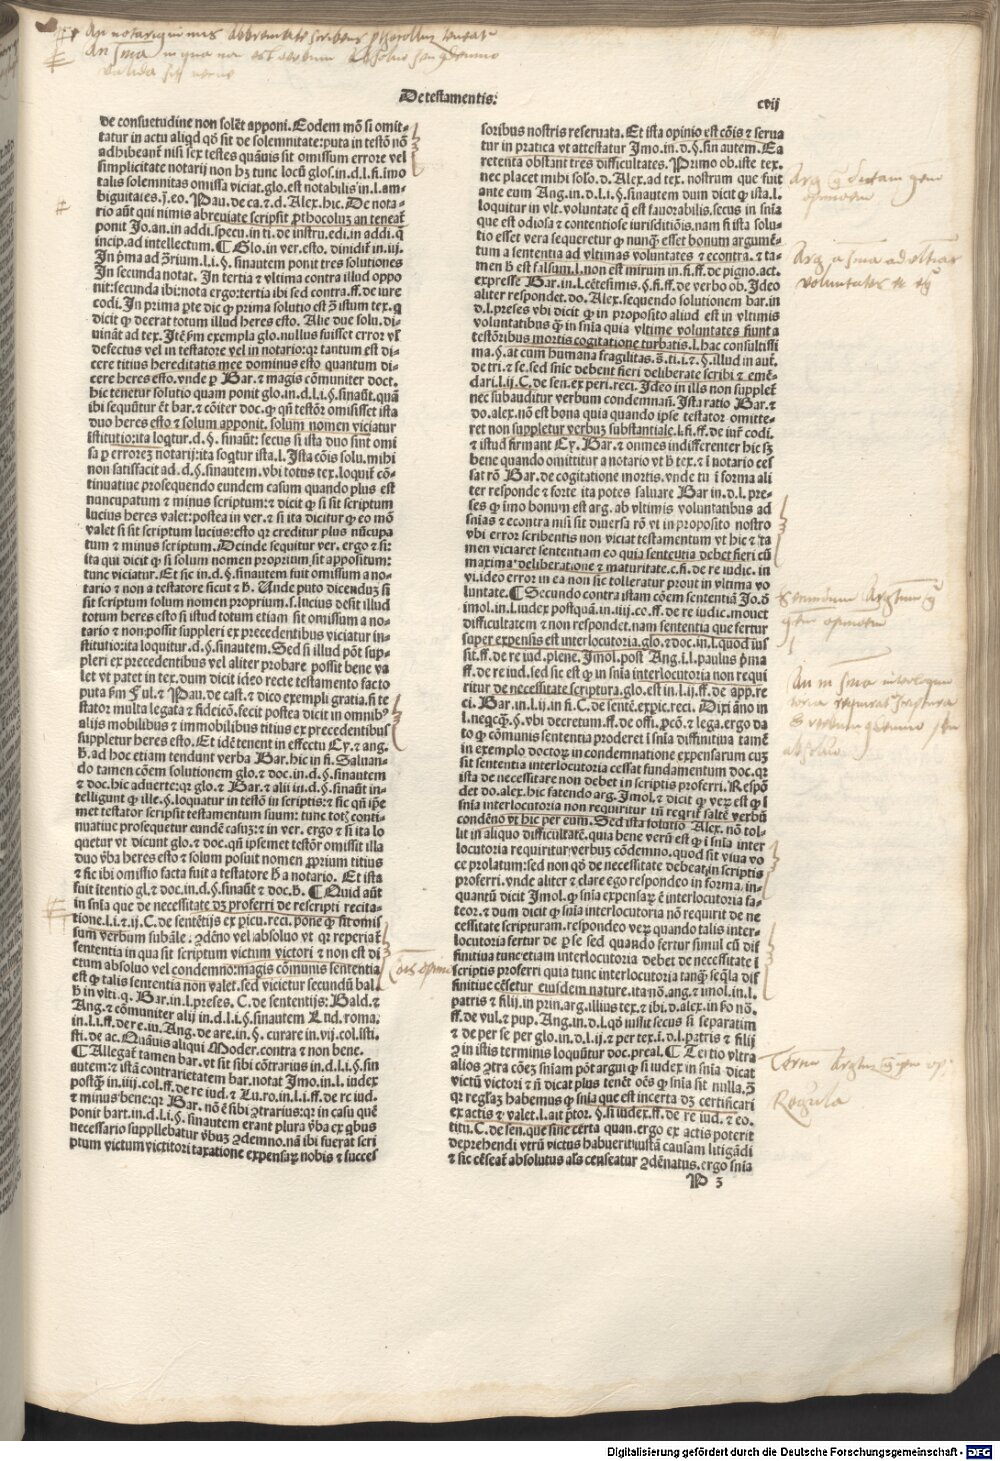 De testamentis.
cvij
de consuetudine non solēt apponi. Eodem mō si omit-
tatur in actu aliqd qđ sit de solemnitate: puta in testō nō
adhibeant nisi sex testes quāuis sit omissum errore vel
simplicitate notarij non hȝ tunc locū glos. in. d. l. fi. imo
talis solemnitas omissa viciat. glo. est notabilis in. l. am-
biguitates. ȷ̄. eo. Pau. de ca. ⁊. d. Alex. hic. De nota-
rio aūt qui nimis abreuiate scripsit ꝓthocoluȝ an teneat̄
ponit Jo. an. in addi. specu. in ti. de instru. edi. in addi. q̄
incip. ad intellectum. ¶ Glo. in ver. esto. diuidit̄ in. iij.
In secunda notat. In tertia ⁊ vltima contra illud oppo
nit: secunda ibi: nota ergo: tertia ibi sed contra. ff. de iure
codi. In prima ꝑte dic ꝙ prima solutio est
dicit ꝙ deerat totum illud heres esto. Alie due solu. di-
nullus fuisset error vl̄
defectus vel in testatore vel in notario: qr tantum est di-
cere titius hereditatis mee dominus esto quantum di-
cere heres esto. vnde ꝓ Bar. ⁊ magis cōmuniter doct.
hic tenetur solutio quam ponit glo. in. d. l. i. §. sinaūt. quā
ibi sequūtur ēt bar. ⁊ cōiter doc. ꝙ qn̄ testōr omisisset ista
duo heres esto ⁊ solum apponit. solum nomen viciatur
īstitutio: ita loq̄tur. d. §. sinaūt: secus si ista duo sint omi
sa ꝑ erroreȝ notarij: ita loq̄tur ista. l. Ista cōis solu. mihi
non satisfacit ad. d. §. sinautem. vbi totus tex. loquit̄ cō-
tinuatiue prosequendo eundem casum quando plus est
nuncupatum ⁊ minus scriptum: ⁊ dicit ꝙ si sit scriptum
lucius heres valet: postea in ver. ⁊ si ita dicitur ꝙ eo mō
valet si sit scriptum lucius: esto qr creditur plus nūcupa
tum ⁊ minus scriptum. Deinde sequitur ver. ergo ⁊ si:
ita qui dicit ꝙ si solum nomen proprium sit appositum:
tunc viciatur. Et sic in. d. §. sinautem fuit omissum a no-
tario ⁊ non a testatore sicut ⁊ ħ. Unde puto dicenduȝ si
sit scriptum solum nomen proprium. s. lucius desit illud
totum heres esto si istud totum etiam sit omissum a no-
tario ⁊ non: possit suppleri ex precedentibus viciatur in-
stitutio: ita loquitur. d. §. sinautem. Sed si illud pōt sup-
pleri ex precedentibus vel aliter probare possit bene va
let vt patet in tex. dum dicit ideo recte testamento facto
puta ꝑm Ful. ⁊ Pau. de cast. ⁊ dico exempli gratia. si te
stator multa legata ⁊ fideicō. fecit postea dicit in omnibꝰ
alijs mobilibus ⁊ immobilibus titius ex precedentibus
suppletur heres esto. Et idē tenent in effectu Cy. ⁊ ang.
ħ. ad hoc etiam tendunt verba Bar. hic in fi. Saluan-
do tamen cōem solutionem glo. ⁊ doc. in. d. §. sinautem
⁊ doc. hic aduerte: qr glo. ⁊ Bar. ⁊ alij in. d. §. sinaūt in-
telligunt ꝙ ille. §. loquatur in testō in scriptis: ⁊ sic qn̄ ip̄e
met testator scripsit testamentum suum: tunc totȝ conti-
nuatiue prosequetur eundē casuȝ: ⁊ in ver. ergo ⁊ si ita lo
quetur vt dicunt glo. ⁊ doc. qn̄ ipsemet testōr omissit illa
duo v̄ba heres esto ⁊ solum posuit nomen ꝓprium titius
⁊ sic ibi omissio facta fuit a testatore ħ a notario. Et ista
fuit itentio gl. ⁊ doc. in. d. §. sinaūt ⁊ doc. ħ. ¶ Quid aūt
in sn̄ia que de necessitate dȝ proferri de rescripti recita-
tione. l. i. ⁊. ij. C. de sentētijs ex ꝑicu. reci. pone ꝙ sit omis
sum verbum subāle. ꝯdēno vel absoluo vt qr reperiat̄
sententia in qua sit scriptum victum victori ⁊ non est di
ctum absoluo vel condemno: magis cōmunis sententia
est ꝙ talis sententia non valet. sed vicietur secundū bal.
ħ in vlti. q. Bar. in. l. preses. C. de sententijs: Bald. ⁊
Ang. ⁊ cōmuniter alij in. d. l. i. §. sinautem Lud. roma.
in. l. i. ff. de re. in. Ang. de are. in. §. curare in. vij. col. isti.
sti. de ac. Quāuis aliqui Moder. contra ⁊ non bene.
¶ Allegat̄ tamen bar. vt sit sibi cōtrarius in. d. l. i. §. sin
autem: ⁊ istā contrarietatem bar. notat Jmo. in. l. iudex
postq̄ȝ in. iiij. col. ff. de re iud. ⁊ Lu. ro. in. l. i. ff. de re iud.
⁊ minus bene: qr Bar. nō ē sibi ꝯtrarius: qr in casu quē
ponit bart. in. d. l. i. §. sinautem erant plura v̄ba ex qbus
necessario suppllebatur v̄buȝ ꝯdemno. nā ibi fuerat scri
ptum victum victitori taxatione expensaꝝ nobis ⁊ succes
soribus nostris reseruata. Et ista opinio est cōis ⁊ serua
tur in pratica vt attestatur Jmo. in. d. §. sin autem. Ea
retenta obstant tres difficultates. Primo ob. iste tex.
nec placet mihi solō. d. Alex. ad tex. nostrum que fuit
ante eum Ang. in. d. l. i. §. sinautem dum dicit ꝙ ista. l.
loquitur in vlt. voluntate q̄ est fauorabilis. secus in sn̄ia
que est odiosa ⁊ contentiose iurisditiōis. nam si ista solu-
tio esset vera sequeretur ꝙ nunq̄ȝ esset bonum argumē-
tum a sententia ad vltimas voluntates ⁊ econtra. ⁊ ta-
men ħ est falsum. l. non est mirum in. fi. ff. de pigno. act.
expresse Bar. in. l. cētesimis. §. fi. ff. de verbo ob. Ideo
aliter respondet. do. Alex. sequendo solutionem bar. in
d. l. preses vbi dicit ꝙ in proposito aliud est in vltimis
voluntatibus q̄ȝ in sn̄ia quia vltime voluntates fiunt a
testōribus mortis cogitatione turbatis. l. hac consultissi
ma. §. at cum humana fragilitas. s̄. ti. i. ⁊. §. illud in aut̄.
de tri. ⁊ se. sed sn̄ie debent fieri deliberate scribi ⁊ emē-
dari. l. ij. C. de sen. ex peri. reci. Ideo in illis non supplet̄
nec subauditur verbum condemnam̄. Ista ratio Bar. ⁊
do. alex. nō est bona quia quando ipse testator omitte-
ret non suppletur verbuȝ substantiale. l. fi. ff. de iur̄ codi.
⁊ istud firmant Cy. Bar. ⁊ omnes indifferenter hic sȝ
bene quando omittitur a notario vt ħ tex. ⁊ ī notario ces
sat rō Bar. de cogitatione mortis. vnde tu ī forma ali
ter responde ⁊ forte ita potes saluare Bar in. d. l. pre-
ses ꝙ imo bonum est arg. ab vltimis voluntatibus ad
sn̄ias ⁊ econtra nisi sit diuersa rō vt in proposito nostro
vbi error scribentis non viciat testamentum vt hic ⁊ ta
men viciaret sententiam eo quia sententia debet fieri cū
maxima deliberatione ⁊ maturitate. c. fi. de re iudic. in
vi. ideo error in ea non sic tolleratur prout in vltima vo
luntate. ¶ Secundo contra istam cōem sententiā Jo. d̄
imol. in. l. iudex postquā. in. iiij. co. ff. de re iudic. mouet
difficultatem ⁊ non respondet. nam sententia que fertur
super expensis est interlocutoria. glo. ⁊ doc. in. l. quod ius
sit. ff. de re iud. plene. Jmol. post Ang. i. l. paulus ꝑma
ff. de re iud. sed sic est ꝙ in sn̄ia interlocutoria non requi
ritur de necessitate scriptura. glo. est in. l. ij. ff. de app. re
ci. Bar. in. l. ij. in fi. C. de sentē. ex ꝑic. reci. Dixi āno in
l. necq̄cȝ. §. vbi decretum. ff. de offi. ꝓcō. ⁊ lega. ergo da
to ꝙ cōmunis sententia proderet ī sn̄ia diffinitiua tamē
in exemplo doctoꝝ in condemnatione expensarum cuȝ
sit sententia interlocutoria cessat fundamentum doc. qr
ista de necessitare non debet in scriptis proferri. Respō
det do. alex. hic fatendo arg. Jmol. ⁊ dicit ꝙ veꝝ est ꝙ ī
sn̄ia interlocutoria non requiritur in regrit saltē verbū
condēno vt hic per eum. Sed ista solutio Alex. nō tol-
lit in aliquo difficultatē. quia bene verū est ꝙ ī sn̄ia inter
locutoria requiritur verbuȝ cōdemno. quod sit viua vo
ce prolatum: sed non qđ de necessitate debeat in scriptis
proferri. vnde aliter ⁊ clare ego respondeo in forma, in-
quantū dicit Jmol. ꝙ sn̄ia expensaꝝ ē interlocutoria fa-
teor. ⁊ dum dicit ꝙ sn̄ia interlocutoria nō requirit de ne
cessitate scripturam. respondeo veꝝ quando talis inter-
locutoria fertur de ꝑ se sed quando fertur simul cū dif
finitiua tunc etiam interlocutoria debet de necessitate ī
scriptis proferri quia tunc interlocutoria tanq̄ȝ seq̄la dif
finitiue cēsetur eiusdem nature. ita nō. ang. ⁊ imol. in. l.
patris ⁊ filij. in prin. arg. illius tex. ⁊ ibi. d. alex. in ꝑo nō.
ff. de vul. ⁊ pup. Ang. in. d. l. qđ iussit secus si separatim
⁊ de per se per glo. in. d. l. ij. ⁊ per tex. ī. d. l. patris ⁊ filij
ꝯ in istis terminis loquūtur doc. preal. ¶ Tertio vltra
alios ꝯtra cōeȝ sn̄iam pōt argui ꝙ si iudex in sn̄ia dicat
victū victori ⁊ n̄ dicat plus tenēt oēs ꝙ sn̄ia sit nulla.
qr regl̄aȝ habemus ꝙ sn̄ia que est incerta dȝ certificari
ex actis ⁊ valet. l. ait p̄tor. §. si iudex. ff. de re iud. ⁊ eo.
titu. C. de sen. que sine certa quan. ergo ex actis poterit
deprehendi vtrū victus habuerit iustā causam litigādi
⁊ sic cēseat̄ absolutus al̄s censeatur ꝯdēnatus. ergo sn̄ia
P 3
Regula
Digitalisierung gefördert durch die Deutsche Forschungsgemeinschaft - DFG